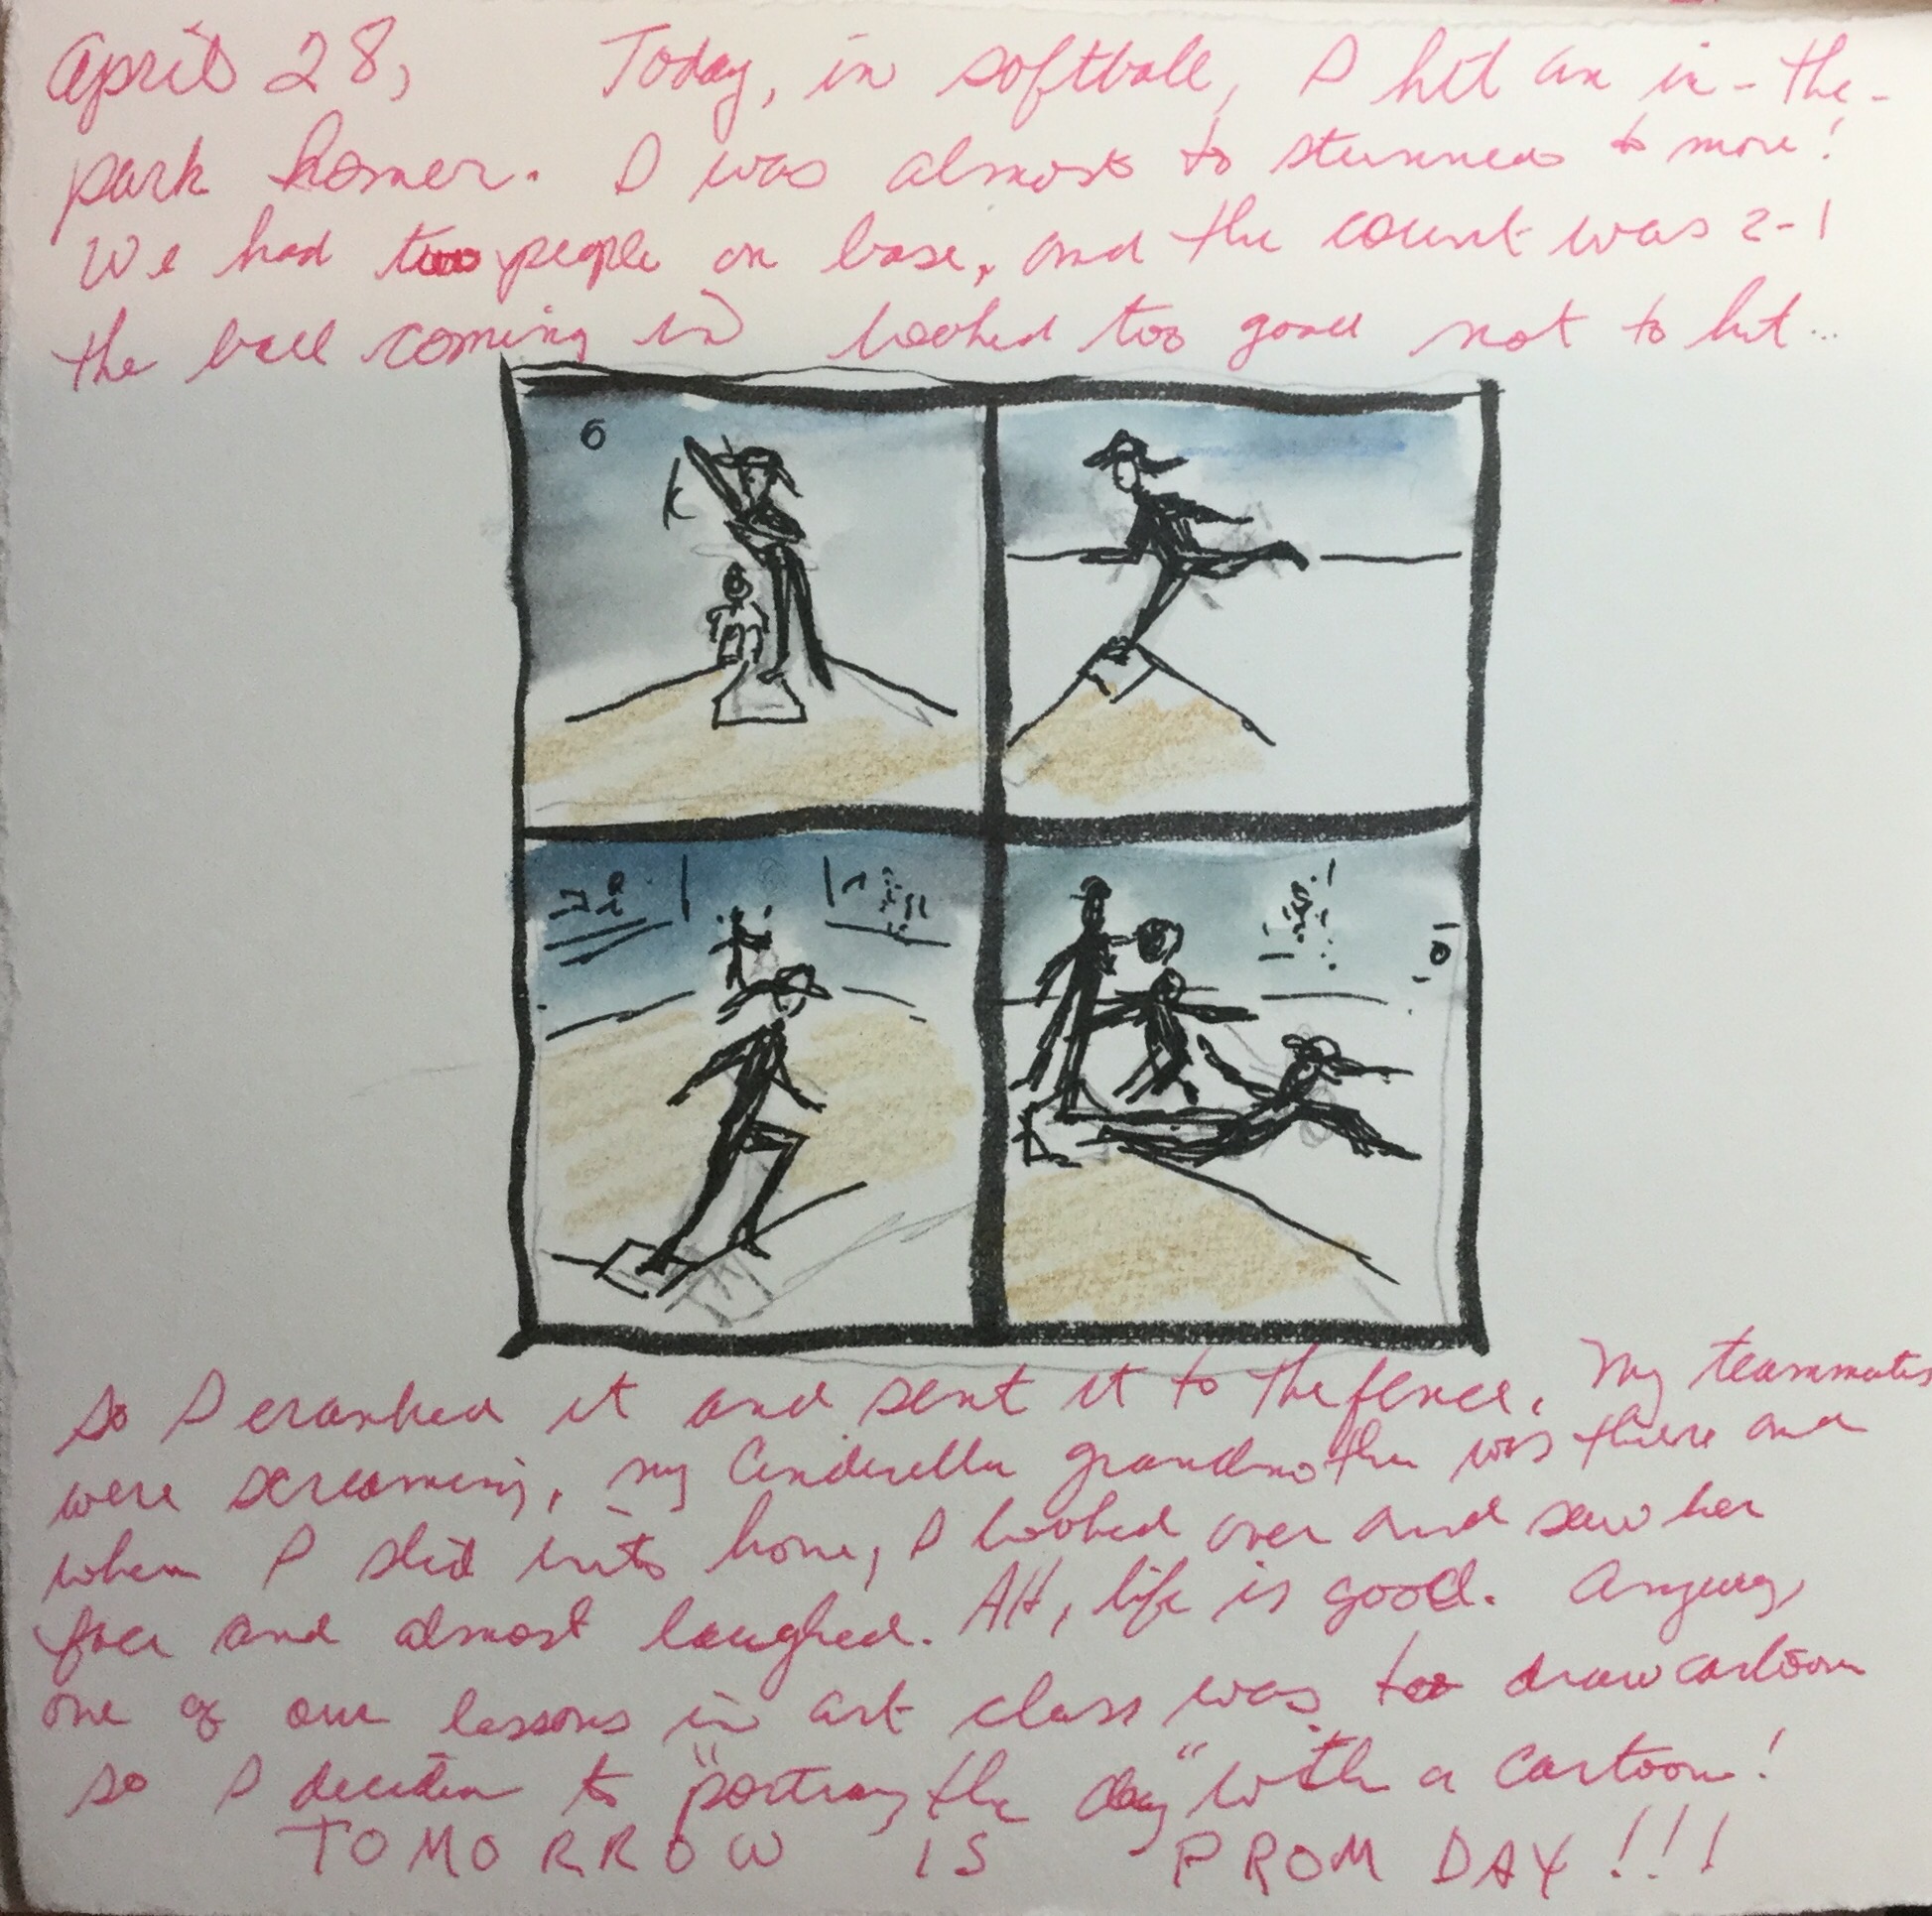 April 28, Today, in softball, I hit an in-the-
park homer. I was almost to stunned to move!
We had two people on base, and the count was 2-1
the ball coming in looked too good not to hit...
so I cranked it and sent it to the fence. My teammates
were screaming, my Cinderella grandmother was there and
when I slid into home, I looked over and saw her
face and almost laughed. AH, life is good. Anyway,
one of our lessons in art class was to draw cartoon
so I decided to "portray the day" with a cartoon!
TOMORROW IS PROM DAY!!!